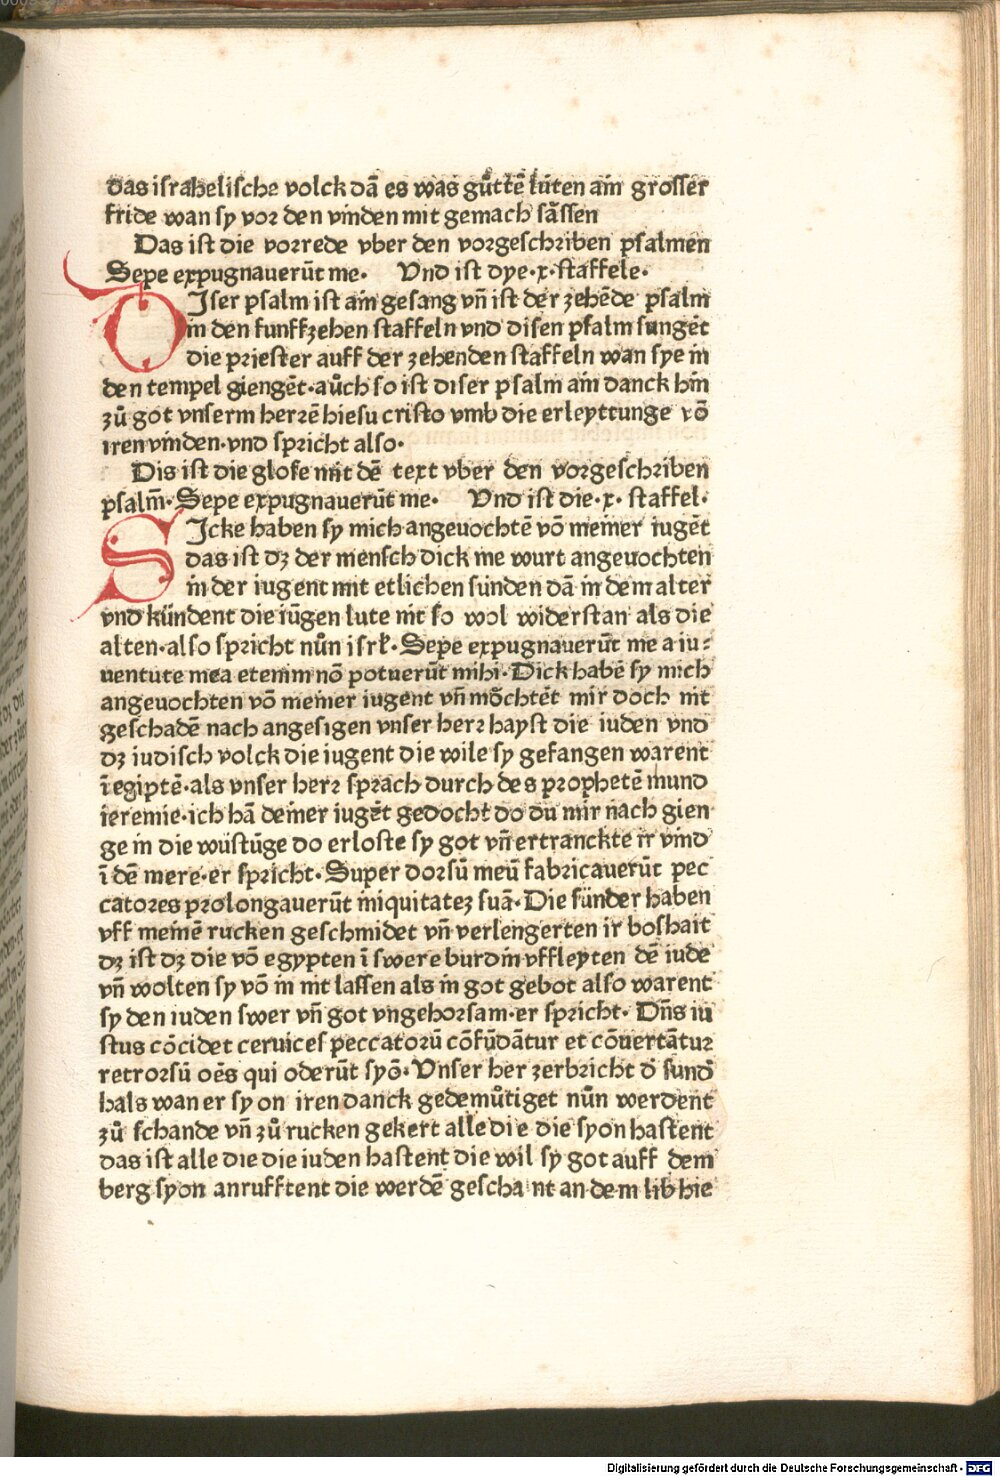 das israhelische volck dā es was gůttē lúten ain grosser
fride wan sy vor den vinden mit gemach sāssen
Das ist die vorrede vber den vorgeschriben psalmen
Sepe expugnauerūt me. Vnd ist dye.x.staffele.
DIser psalm ist ain gesang vñ ist der zehēde psalm
in den funffzehen staffeln vnd disen psalm sungēt
die priester auff der zehenden staffeln wan sye in
den tempel giengēt.aůch so ist diser psalm ain danck hin
zů got vnserm herrē hiesu cristo vmb die erleyttunge võ
iren vinden.vnd spricht also.
Dis ist die glose mit dē text vber den vorgeschriben
psalm̄.Sepe expugnauerūt me. Vnd ist die.x.staffel.
SIcke haben sy mich angeuochtē võ meiner iugēt
das ist dz der mensch dick me wurt angeuochten
in der iugent mit etlichen sunden dā in dem alter
vnd kündent die iūgen lute nit so wol widerstan als die
alten.also spricht nůn isrl̄.Sepe expugnauerūt me a iu⸗
uentute mea etenim nō potuerūt mihi.Dick habē sy mich
angeuochten võ meiner iugent vñ mōchtēt mir doch nit
geschadē nach angesigen vnser herr hayst die iuden vnd
dz iudisch volck die iugent die wile sy gefangen warent
ī egiptē.als vnser herr sprach durch des prophetē mund
ieremie.ich hā deiner iugēt gedocht do du mir nach gien
ge in die wustūge do erloste sy got vñ ertranckte ir vind
ī dē mere.er spricht.Super dorsū meū fabricauerūt pec
catores prolongauerūt iniquitatez suā.Die sünder haben
vff meinē rucken geschmidet vñ verlengerten ir boshait
dz ist dz die võ egypten ī swere burdin vffleyten dē iude
vñ wolten sy võ in nit lassen als in got gebot also warent
sy den iuden swer vñ got vngehorsam.er spricht. Dn̄s iu
stus cōcidet ceruices peccatorū cōfūdātur et cōuertātur
retrorsū oēs qui oderūt syō.Vnser her zerbricht d̄ sund̄
hals wan er sy on iren danck gedemůtiget nůn werdent
zů schande vñ zů rucken gekert alle die die syon hastent
das ist alle die die iuden hastent die wil sy got auff dem
berg syon anrufftent die werdē geschant an dem lib hie
Digitalisierung gefördert durch die Deutsche Forschungsgemeinschaft - DFG